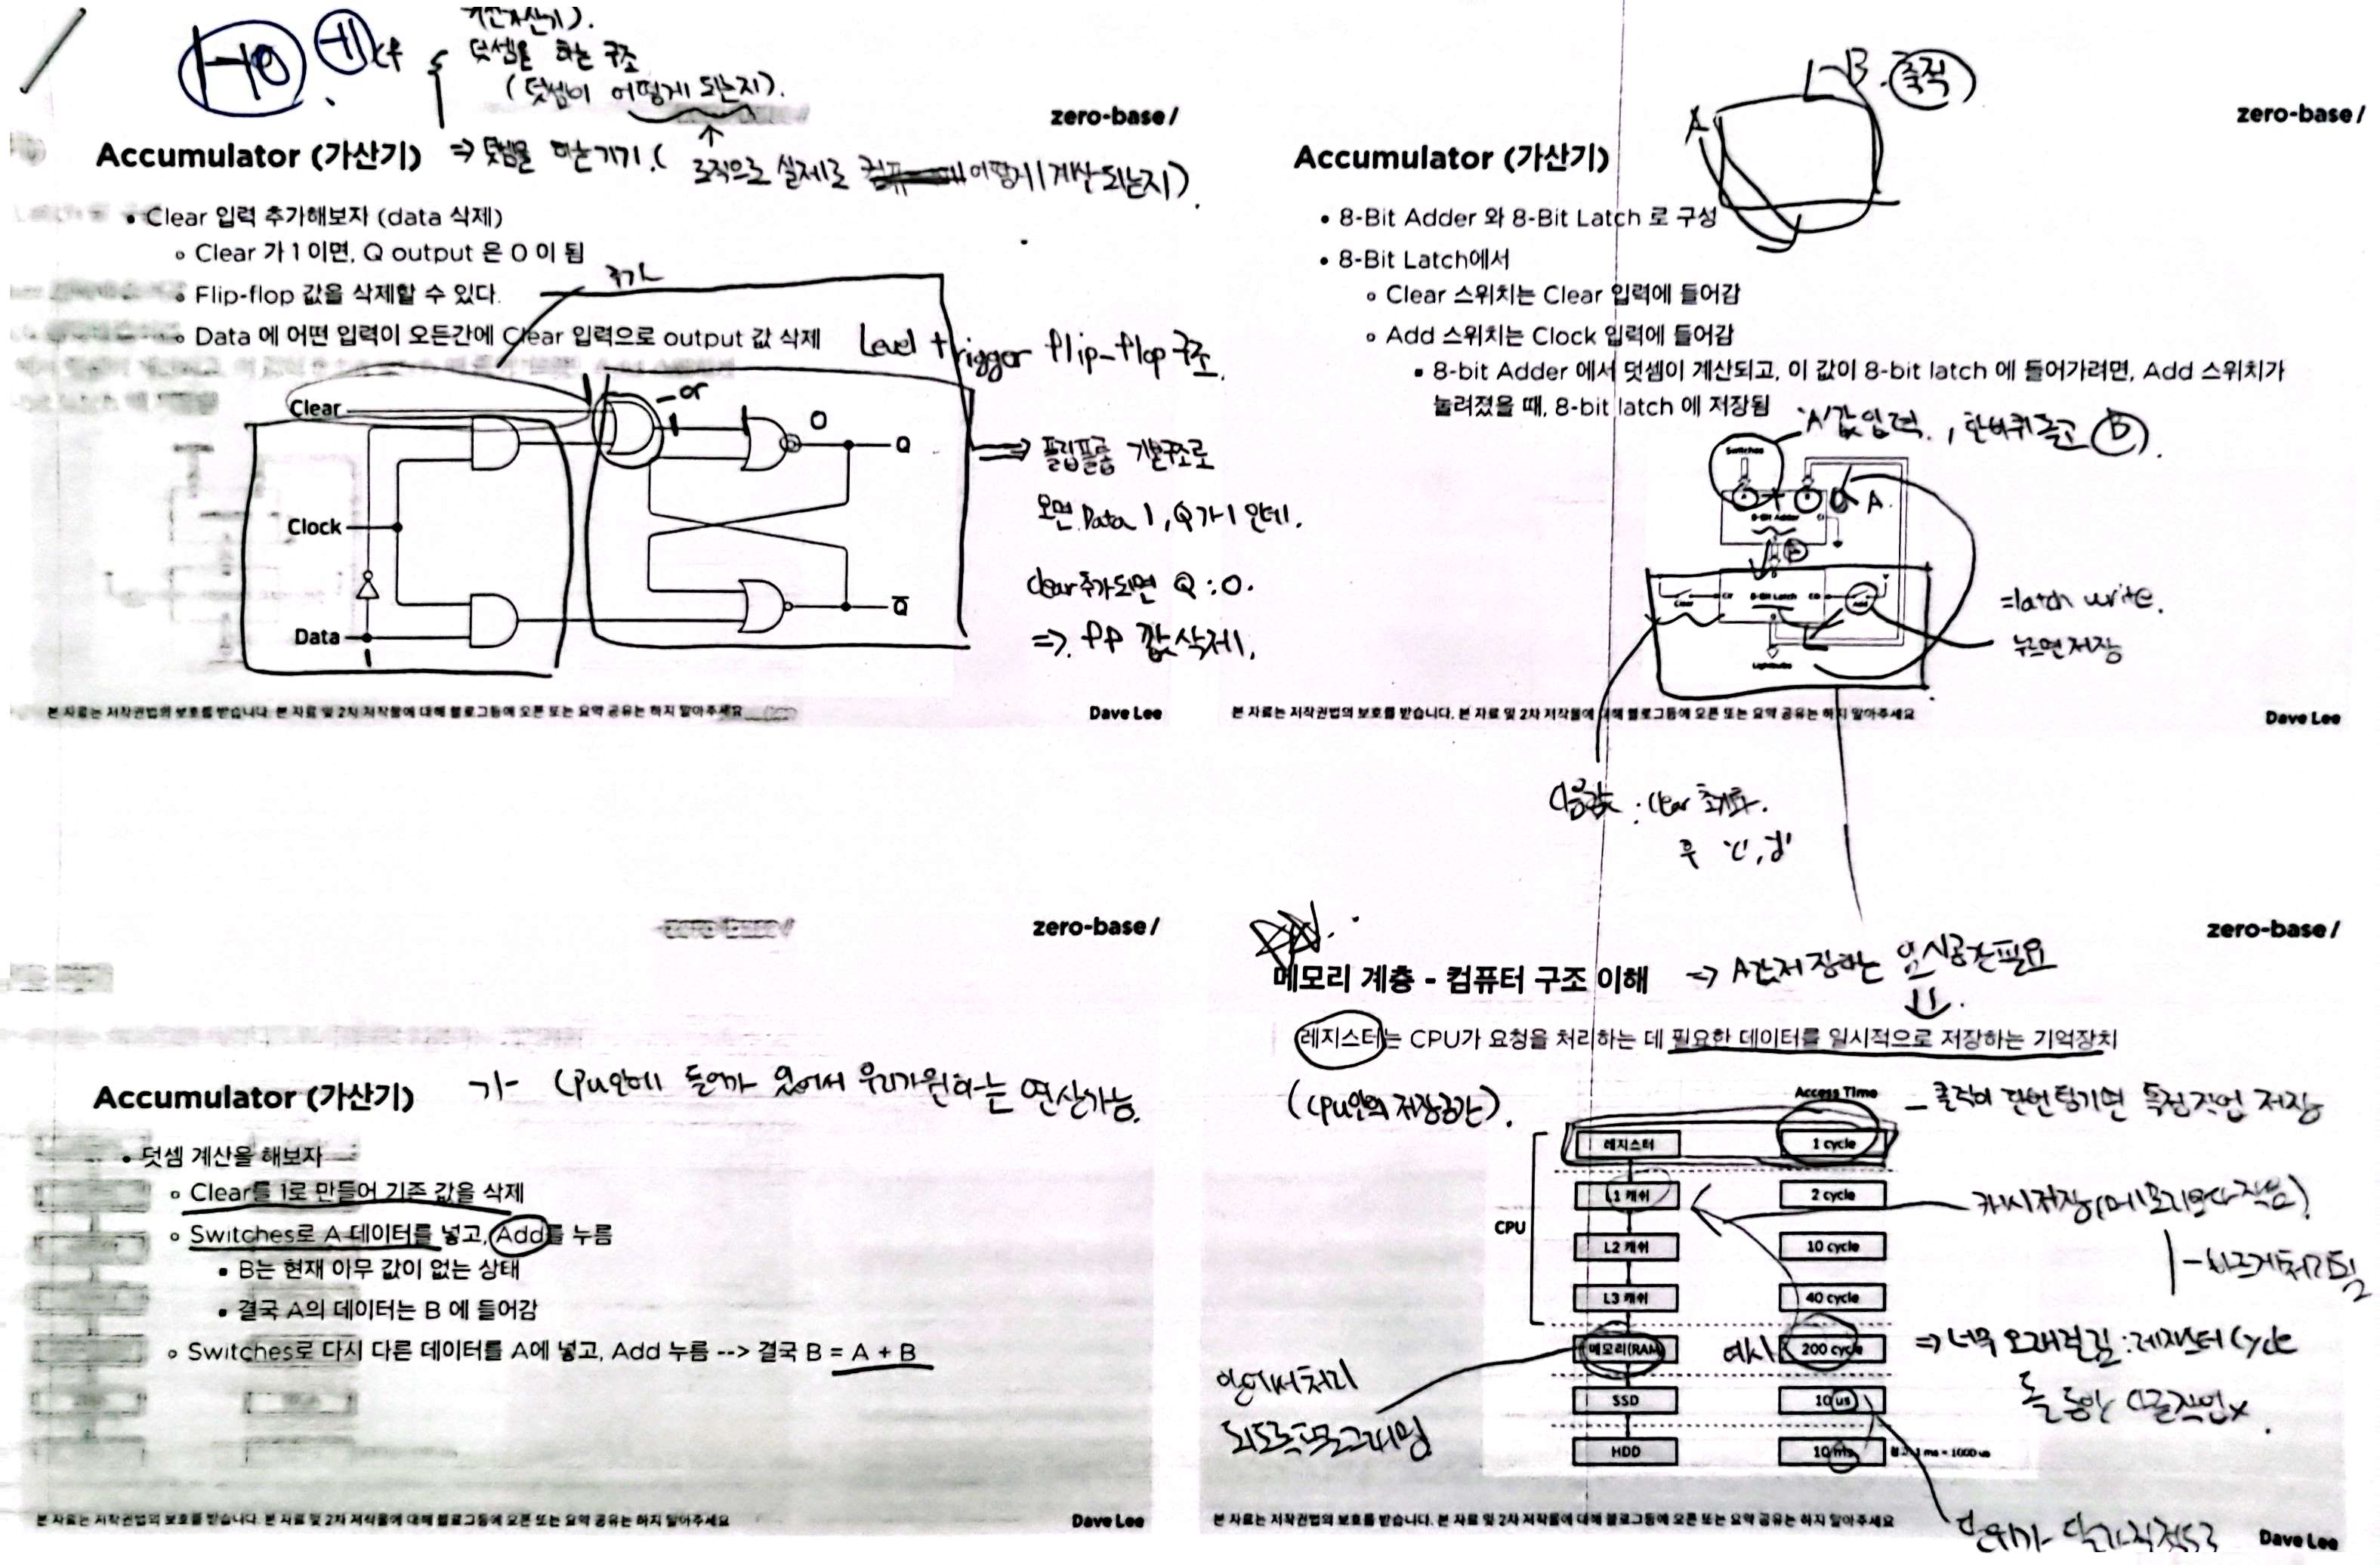 덧셈을 하는 구조
(덧셈이 어떻게 되는지).
zero-base/
Accumulator (가산기) ⇒ 덧셈을 하는기기. (로직으로 실제로 어떻게 계산되는지).
• Clear 입력 추가해보자 (data 삭제)
◦ Clear 가 1 이면, Q output 은 0 이 됨
추가
◦ Flip-flop 값을 삭제할 수 있다.
◦ Data 에 어떤 입력이 오든간에 Clear 입력으로 output 값 삭제
Level trigger flip-flop 구조.
Clear
or
1
1
0
Q
Clock
Data
1
Q̅
⇒ 플립플롭 기본구조로
오면 Data 1, Q가 1 인데.
clear 추가되면 Q : 0.
⇒ FF 값 삭제.
본 자료는 저작권법의 보호를 받습니다. 본 자료 및 2차 저작물에 대해 블로그등에 오픈 또는 요약 공유는 하지 말아주세요
Dave Lee
B. 축적
A
zero-base/
Accumulator (가산기)
• 8-Bit Adder 와 8-Bit Latch 로 구성
• 8-Bit Latch에서
◦ Clear 스위치는 Clear 입력에 들어감
◦ Add 스위치는 Clock 입력에 들어감
▪ 8-bit Adder 에서 덧셈이 계산되고, 이 값이 8-bit latch 에 들어가려면, Add 스위치가
눌려졌을 때, 8-bit latch 에 저장됨
'A'값 입력. , 한바퀴 돌고 B.
Switches
A
B
A.
8-Bit Adder
Clear
Clr
8-Bit Latch
Add
Lightbulbs
=latch write.
누르면 저장
본 자료는 저작권법의 보호를 받습니다. 본 자료 및 2차 저작물에 대해 블로그등에 오픈 또는 요약 공유는 하지 말아주세요
Dave Lee
다음값 : clear 초기화.
후 'c', 'd'
zero-base/
Accumulator (가산기)
가- cpu안에 들어가 있어서 우리가원하는 연산가능.
• 덧셈 계산을 해보자
◦ Clear를 1로 만들어 기존 값을 삭제
◦ Switches로 A 데이터를 넣고, Add를 누름
▪ B는 현재 아무 값이 없는 상태
▪ 결국 A의 데이터는 B 에 들어감
◦ Switches로 다시 다른 데이터를 A에 넣고, Add 누름 --> 결국 B = A + B
본 자료는 저작권법의 보호를 받습니다. 본 자료 및 2차 저작물에 대해 블로그등에 오픈 또는 요약 공유는 하지 말아주세요
Dave Lee
zero-base/
메모리 계층 - 컴퓨터 구조 이해 ⇒ A값저장하는 임시공간필요
레지스터는 CPU가 요청을 처리하는 데 필요한 데이터를 일시적으로 저장하는 기억장치
(cpu안의 저장공간).
Access Time
클럭이 한번 튕기면 특정작업 저장
레지스터
1 cycle
1 캐쉬
2 cycle
캐시저장(메모리보다 작음)
CPU
L2 캐쉬
10 cycle
빠르게처리됨
L3 캐쉬
40 cycle
메모리(RAM)
예시
200 cycle
⇒ 너무 오래걸림 : 레지스터 cycle
돌 동안 다른작업x
안에서처리
되도록프로그래밍
SSD
10 us
HDD
10 ms
참고: 1 ms = 1000 us
단위가
본 자료는 저작권법의 보호를 받습니다. 본 자료 및 2차 저작물에 대해 블로그등에 오픈 또는 요약 공유는 하지 말아주세요
Dave Lee